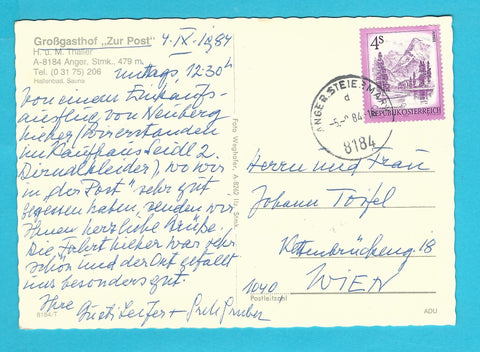 Großgasthof „Zur Post"
H. u. M. Thaller
A-8184 Anger, Stmk., 479 m.
Tel. (0 31 75) 206
Hallenbad, Sauna
4-IX-1984
mittags, 12:30h
Von einem Einkaufs-
ausflug von Neuberg
hieher (
im Kaufhaus Seidl 2
Dirndlkleider), wo wir
in „der Post" sehr gut
gegessen haben, senden wir
Ihnen herzliche Grüße.
Die Fahrt hieher war sehr
schön und der Ort gefällt
uns besonders gut.
Ihre
+ Gretl Gruber
8184/7
Foto Weghofer, A-8262 Ilz, Stmk.
4s
REPUBLIK ÖSTERREICH
ANGER, STEIERMARK
d
84
8184
Herrn und Frau
Johann Toifl
Kettenbrückeng. 18
1040 WIEN
Postleitzahl
ADU